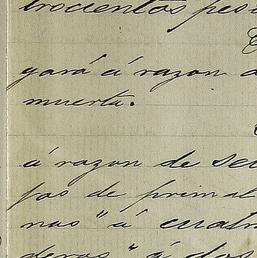 trocientos pes
gará á razon d
muerta.
á razon de se
jas de prim al
nas" á cuatr
deras" á dos